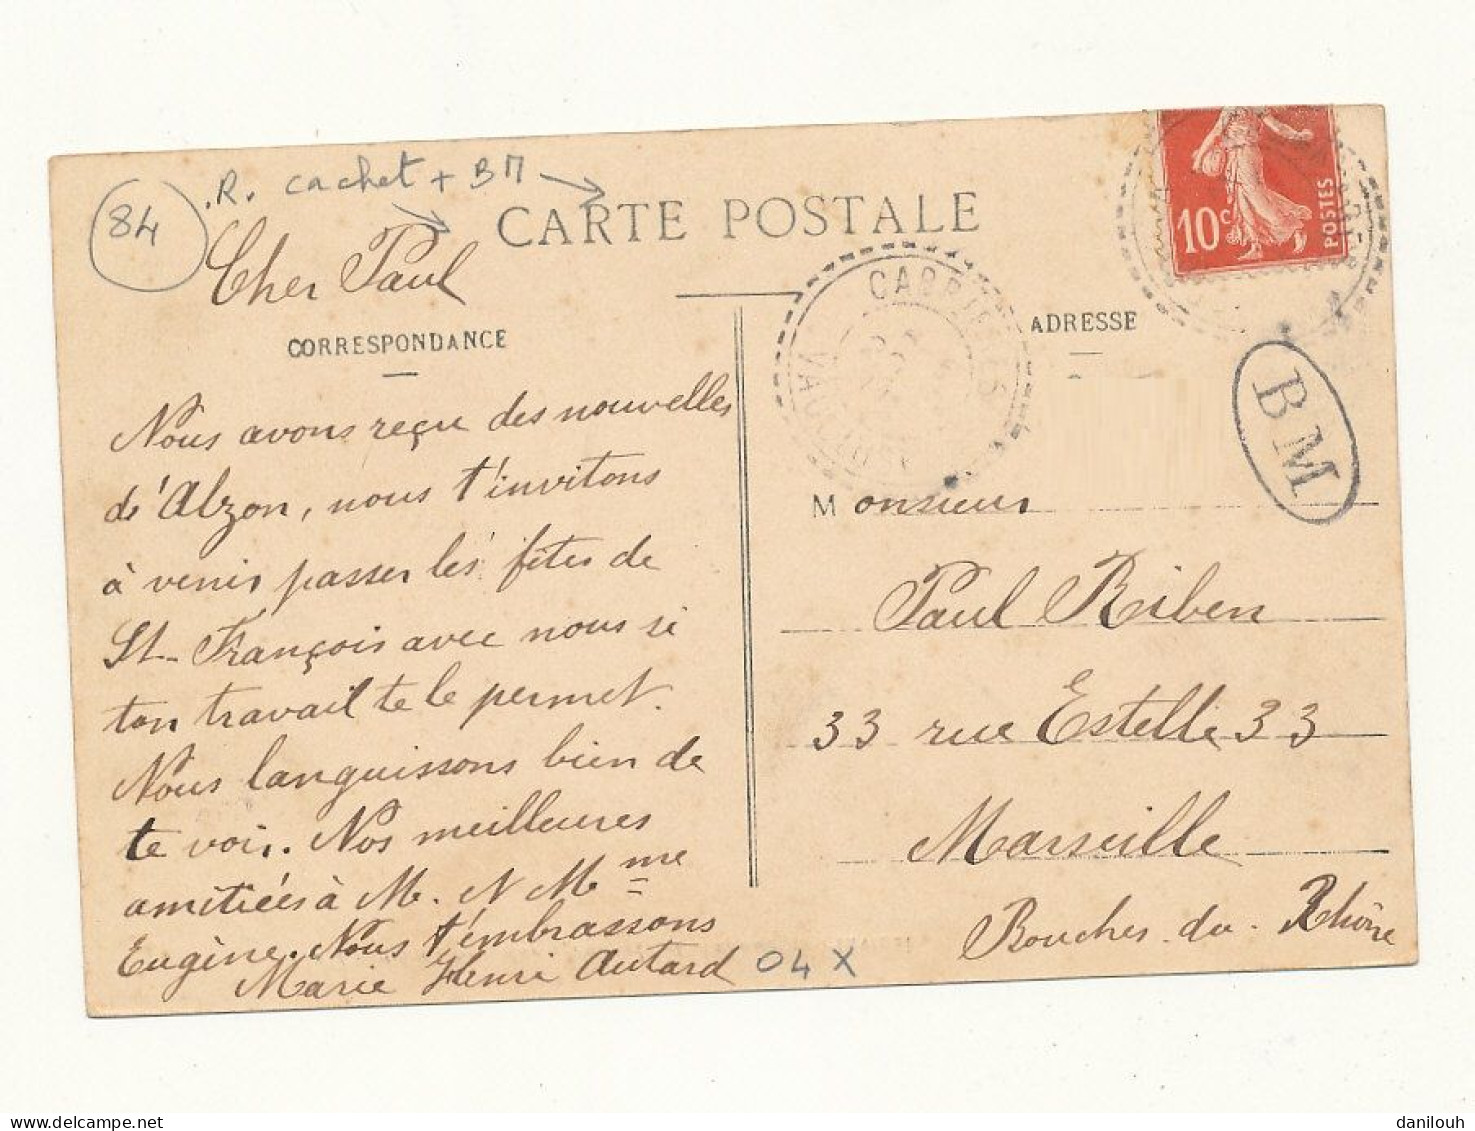 84
.R. cachet + BM
CARTE POSTALE
Cher Paul
CORRESPONDANCE
Nous avons reçu des nouvelles
d'Alzon, nous t'invitons
à venir passer les fêtes de
St-François avec nous si
ton travail te le permet.
Nous languissons bien de
te voir. Nos meilleures
amitiées à M. N Mme
Eugène. Nous t'embrassons
Marie Henri Autard
04 X
CABRIERES
VAUCLUSE
10c
POSTES
ADRESSE
BM
Monsieur
Paul Riben
33 rue Estelle 33
Marseille
Bouches-du-Rhône
danilouh